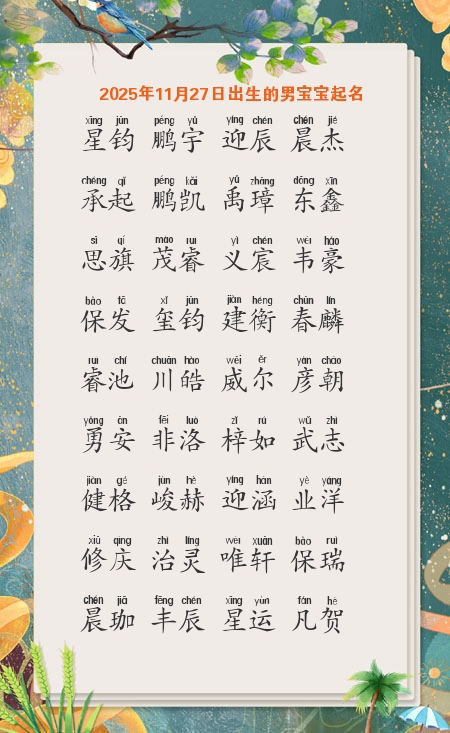 2025年11月27日出生的男宝宝起名
xīng jūn péng yǔ yíng chén chén jié
星钧 鹏宇 迎辰 晨杰
chéng qǐ péng kǎi yǔ zhāng dōng xīn
承起 鹏凯 禹璋 东鑫
sī qí mào ruì yì chén wéi háo
思旗 茂睿 义宸 韦豪
bǎo fā xǐ jūn jiàn héng chūn lín
保发 玺钧 建衡 春麟
ruì chí chuān hào wēi ěr yàn cháo
睿池 川皓 威尔 彦朝
yǒng ān fēi luò zǐ rú wǔ zhì
勇安 非洛 梓如 武志
jiàn gé jùn hè yíng hán yè yáng
健格 峻赫 迎涵 业洋
xiū qìng zhì líng wéi xuān bǎo ruì
修庆 治灵 唯轩 保瑞
chén jiā fēng chén xīng yùn fán hè
晨珈 丰辰 星运 凡贺